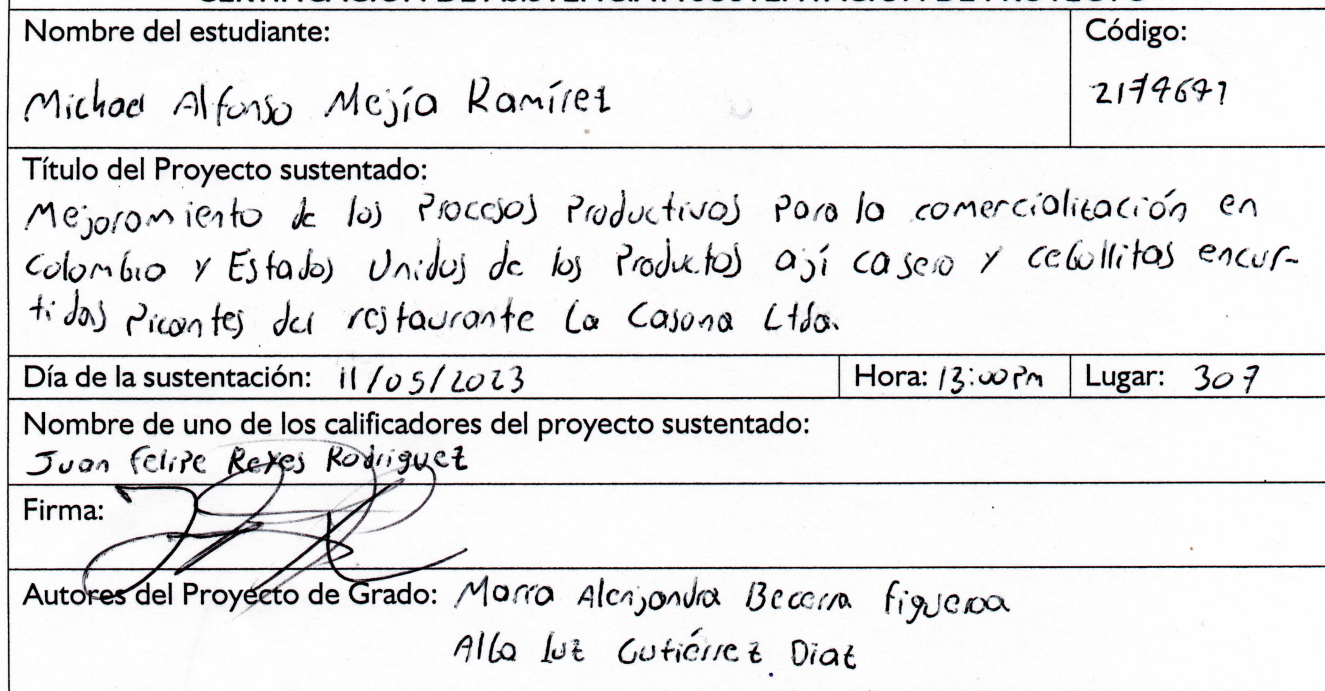 CERTIFICACIÓN DE ASISTENCIA A SUSTENTACIÓN DE PROYECTO
Nombre del estudiante:
Michael Alfonso Mejía Ramírez
Código:
2174641
Título del Proyecto sustentado:
Mejoramiento de los Procesos Productivos Para la comercialización en
Colombia y Estados Unidos de los Productos ají casero y cebollitas encur-
tidas Picantes del restaurante La Casona Ltda.
Día de la sustentación: 11/05/2023
Hora: 13:00 Pm
Lugar: 307
Nombre de uno de los calificadores del proyecto sustentado:
Juan Felipe Reyes Rodriguez
Firma:
Autores del Proyecto de Grado: María Alejandra Becerra Figueroa
Alba Luz Gutiérrez Diaz